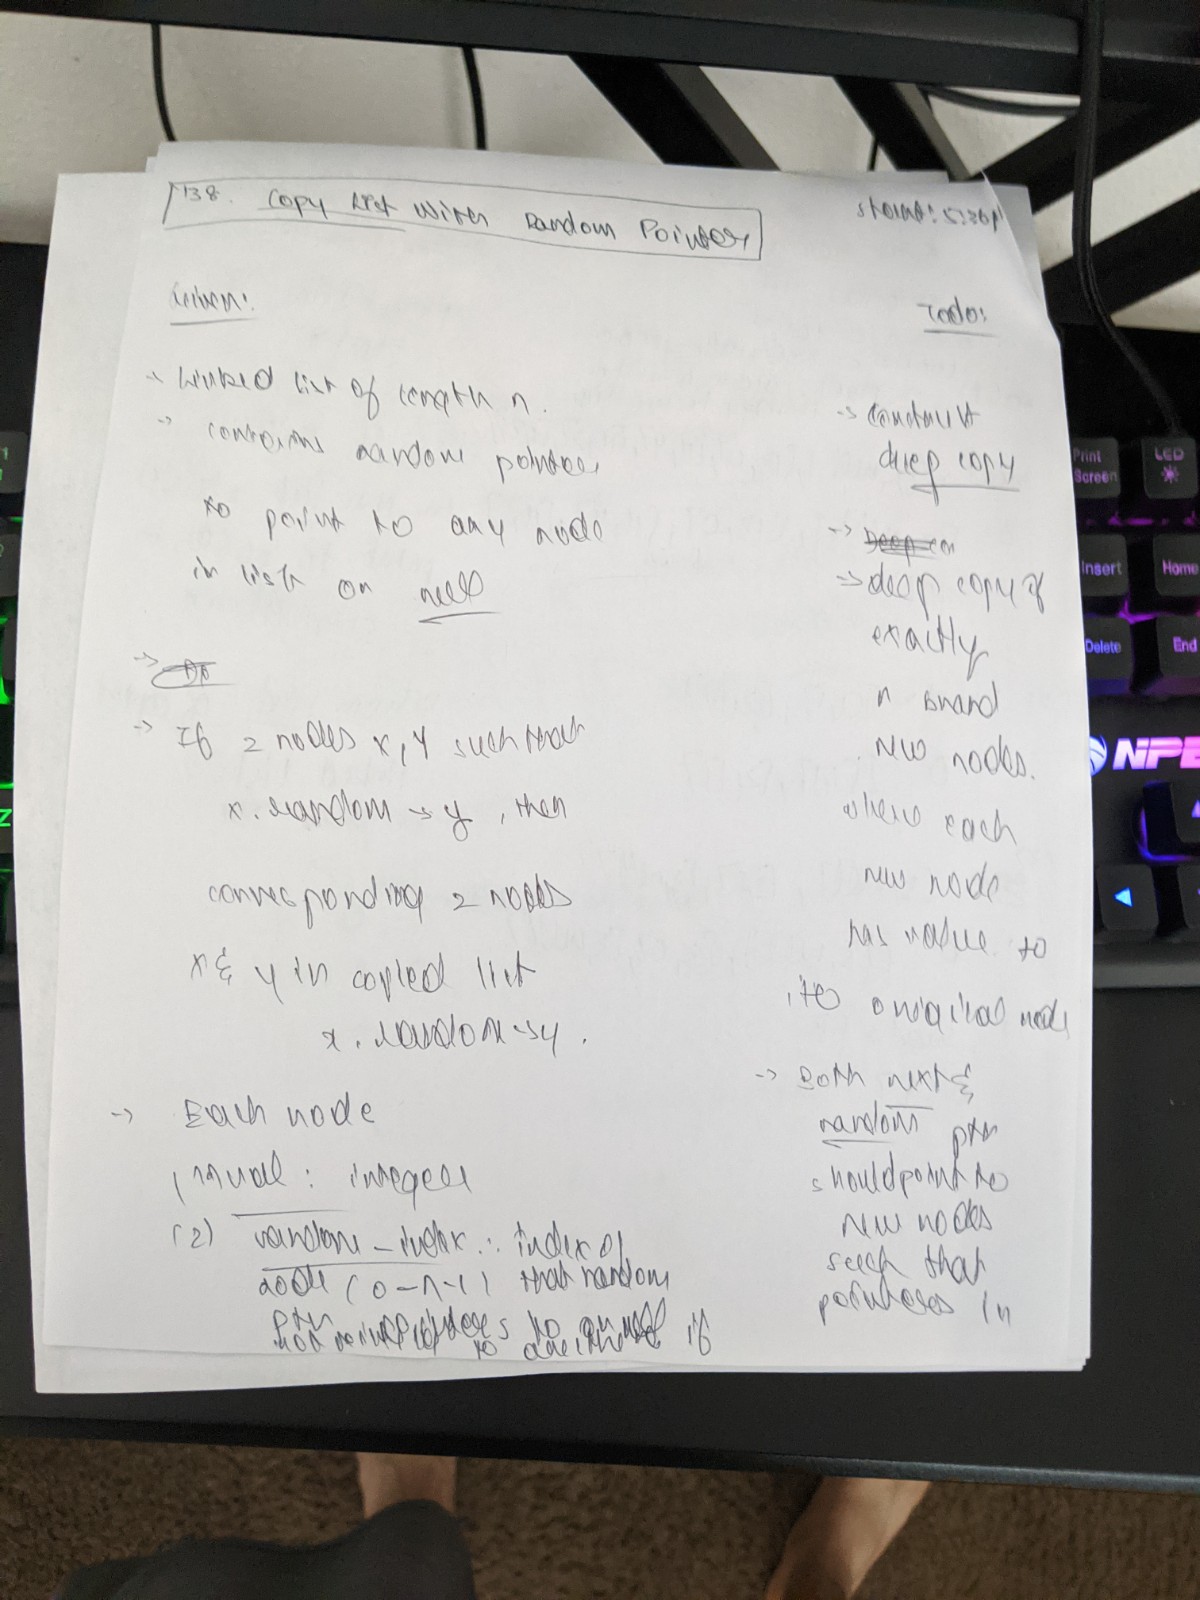 138. Copy List With Random Pointer
start: 5:26p
Given:
-> Linked list of length n.
-> contains random pointer
to point to any node
in list or null
->
-> If 2 nodes x, y such that
x.random -> y, then
corresponding 2 nodes
x & y in copied list
x.random -> y.
-> Each node
(1) val: integer
(2) random_index: index of
node (0-n-1) that random
ptr points to
if
Todo:
-> construct
deep copy
-> Deep co
-> deep copy of
exactly
n brand
new nodes.
where each
new node
has value to
its original node
-> Both next &
random ptr
should point to
new nodes
such that
pointers in
Print
Screen
LED
Insert
Home
Delete
End
NPE
Z